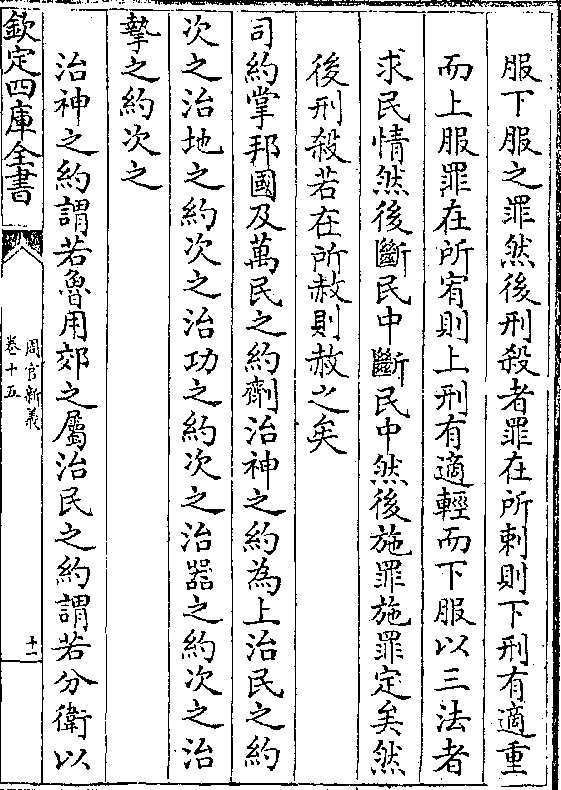 服下服之罪然後刑殺者罪在所刺則下刑有適重
而上服罪在所宥則上刑有適輕而下服以三法者
求民情然後斷民中斷民中然後施罪施罪定矣然
後刑殺若在所赦則赦之矣
司約掌邦國及萬民之約劑治神之約為上治民之約
次之治地之約次之治功之約次之治器之約次之治
摯之約次之
治神之約謂若魯用郊之屬治民之約謂若分衛以
欽定四庫全書
周官新義
卷十五
十一